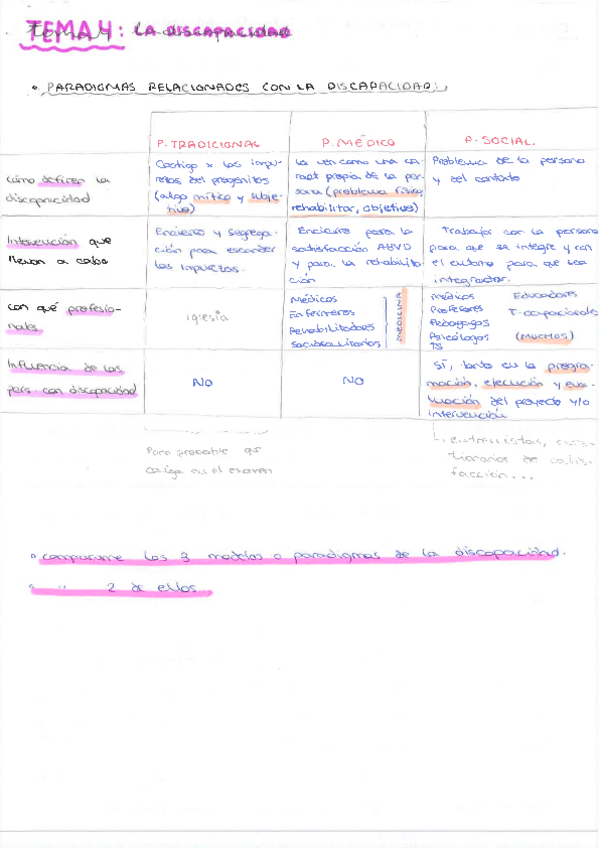 TEMA 4: LA DISCAPACIDAD
• PARADIGMAS RELACIONADOS CON LA DISCAPACIDAD:
P. TRADICIONAL P. MÉDICO P. SOCIAL.
Cómo definen la
discapacidad
Castigo x los impu-
retos del progenitos
(algo mítico y subje-
tivo)
La ven como una ca-
ract propia de la per-
sona (problema físico,
rehabilitar, objetivos)
Problema de la persona
y del contexto
Intervención que
llevan a cabo
Encierro y segrega-
ción para esconder
las impurezas.
Encierro para la
satisfacción ABVD
y para la rehabilita-
ción
Trabajar con la persona
para que se integre y con
el entorno para que sea
integrador.
Con qué profesio-
nales.
iglesia
Médicos
Enfermeros
Rehabilitadores
Sociosanitarios
MEDICINA
Médicos
Profesores
Pedagogos
Psicólogos
TS
Educadores
T. ocupacionales
(MUCHOS)
Influencia de las
pers. con discapacidad
NO
NO
SÍ, tanto en la progra-
mación, ejecución y eva-
luación del proyecto y/o
intervención
Poco probable qe
caiga en el examen
entrevistas, cues-
tionarios de satis-
facción...
▫ compararme los 3 modelos o paradigmas de la discapacidad.
▫ " " 2 de ellos.